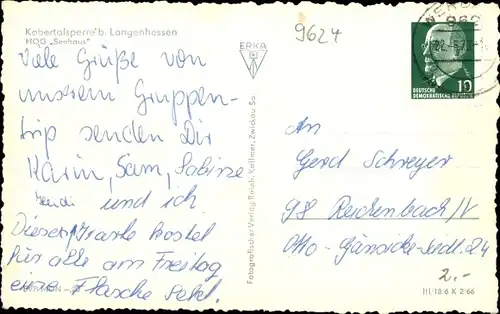 Kobertalsperre b. Langenhessen
HOG „Seehaus"
Viele Grüße von
unserem Gruppen-
trip senden Dir
Karin, Sam, Sabine
und ich
Diese Karte kostet
für alle am Freitag
eine Flasche Sekt.
ERKA
9624
Fotografischer Verlag Reinh. Kallmer, Zwickau Sa.
962
10
DEUTSCHE
DEMOKRATISCHE REPUBLIK
An
Gerd Schreyer
98 Reichenbach/V
Otto-Gäncicke-Sredl. 24
2.-
III 18 6 K 2 66